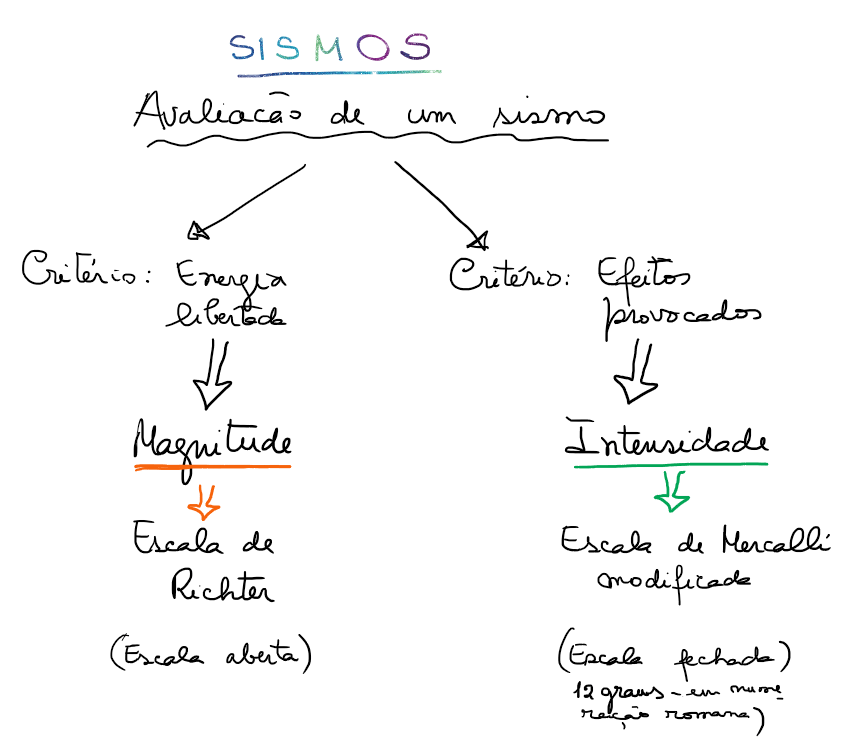 SISMOS
Avaliação de um sismo
Critério: Energia
libertada
Magnitude
Escala de
Richter
(Escala aberta)
Critério: Efeitos
provocados
Intensidade
Escala de Mercalli
modificada
(Escala fechada)
12 graus - em nume
ração romana)